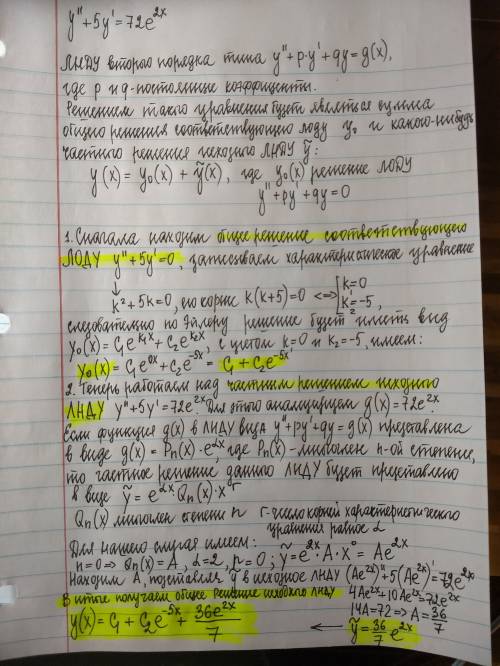 y''+5y'=72e^{2x}
ЛНДУ второго порядка типа y''+p·y'+qy=g(x),
где p и q-постоянные коэффициенты.
Решением такого уравнения будет являться сумма
общего решения соответствующего лоду y₀ и какого-нибудь
частного решения исходного ЛНДУ ỹ:
y(x) = y₀(x) + ỹ(x), где y₀(x) решение ЛОДУ
y''+py'+qy=0
1. Сначала находим общее решение соответствующего
ЛОДУ y''+5y'=0, записываем характеристическое уравнение
↓
k²+5k=0, его корни k(k+5)=0 <=> [k₁=0 k₂=-5,
следовательно по Эйлеру решение будет иметь вид
y₀(x) = C₁e^{k₁x} + C₂e^{k₂x}, с учетом k=0 и k₂=-5, имеем:
y₀(x) = C₁e^{0x} + C₂e^{-5x} = C₁ + C₂e^{-5x}
2. Теперь работаем над частным решением исходного
ЛНДУ y''+5y'=72e^{2x}. Для этого анализируем g(x)=72e^{2x}.
Если функция g(x) в ЛНДУ вида y''+py'+qy=g(x) представлена
в виде g(x) = Pₙ(x)·e^{αx}, где Pₙ(x)-многочлен n-ой степени,
то частное решение данного ЛНДУ будет представлено
в виде ỹ = e^{αx}Qₙ(x)·x^r
Qₙ(x) многочлен степени n r-число корней характеристического
уравнения равное α
Для нашего случая имеем:
n=0 => Qₙ(x) = A, α=2, r=0; ỹ=e^{2x}·A·x⁰ = Ae^{2x}
Находим A, подставляя ỹ в исходное ЛНДУ (Ae^{2x})''+5(Ae^{2x})'=72e^{2x}
4Ae^{2x}+10Ae^{2x}=72e^{2x}
В итоге получаем общее решение исходного ЛНДУ
14A=72 => A=36/7
y(x) = C₁ + C₂e^{-5x} + 36e^{2x}/7 ← ỹ=36/7 e^{2x}